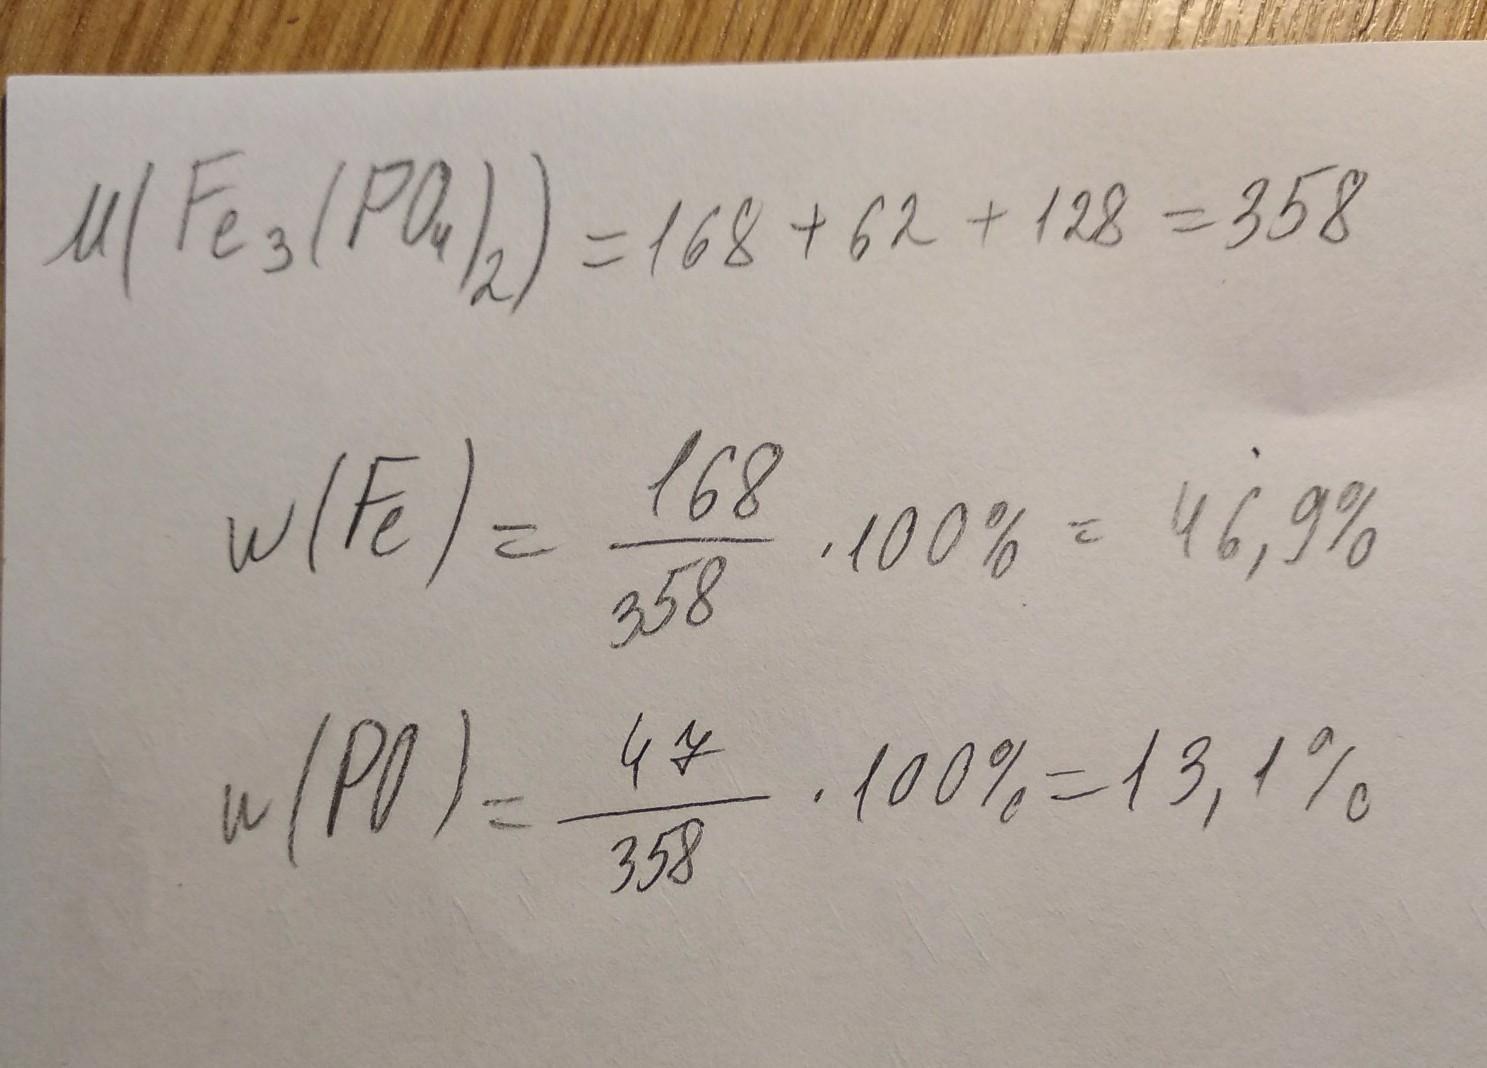 M(Fe₃(PO₄)₂) = 168 + 62 + 128 = 358
w(Fe) = 168/358 · 100% = 46,9%
w(PO) = 47/358 · 100% = 13,1%